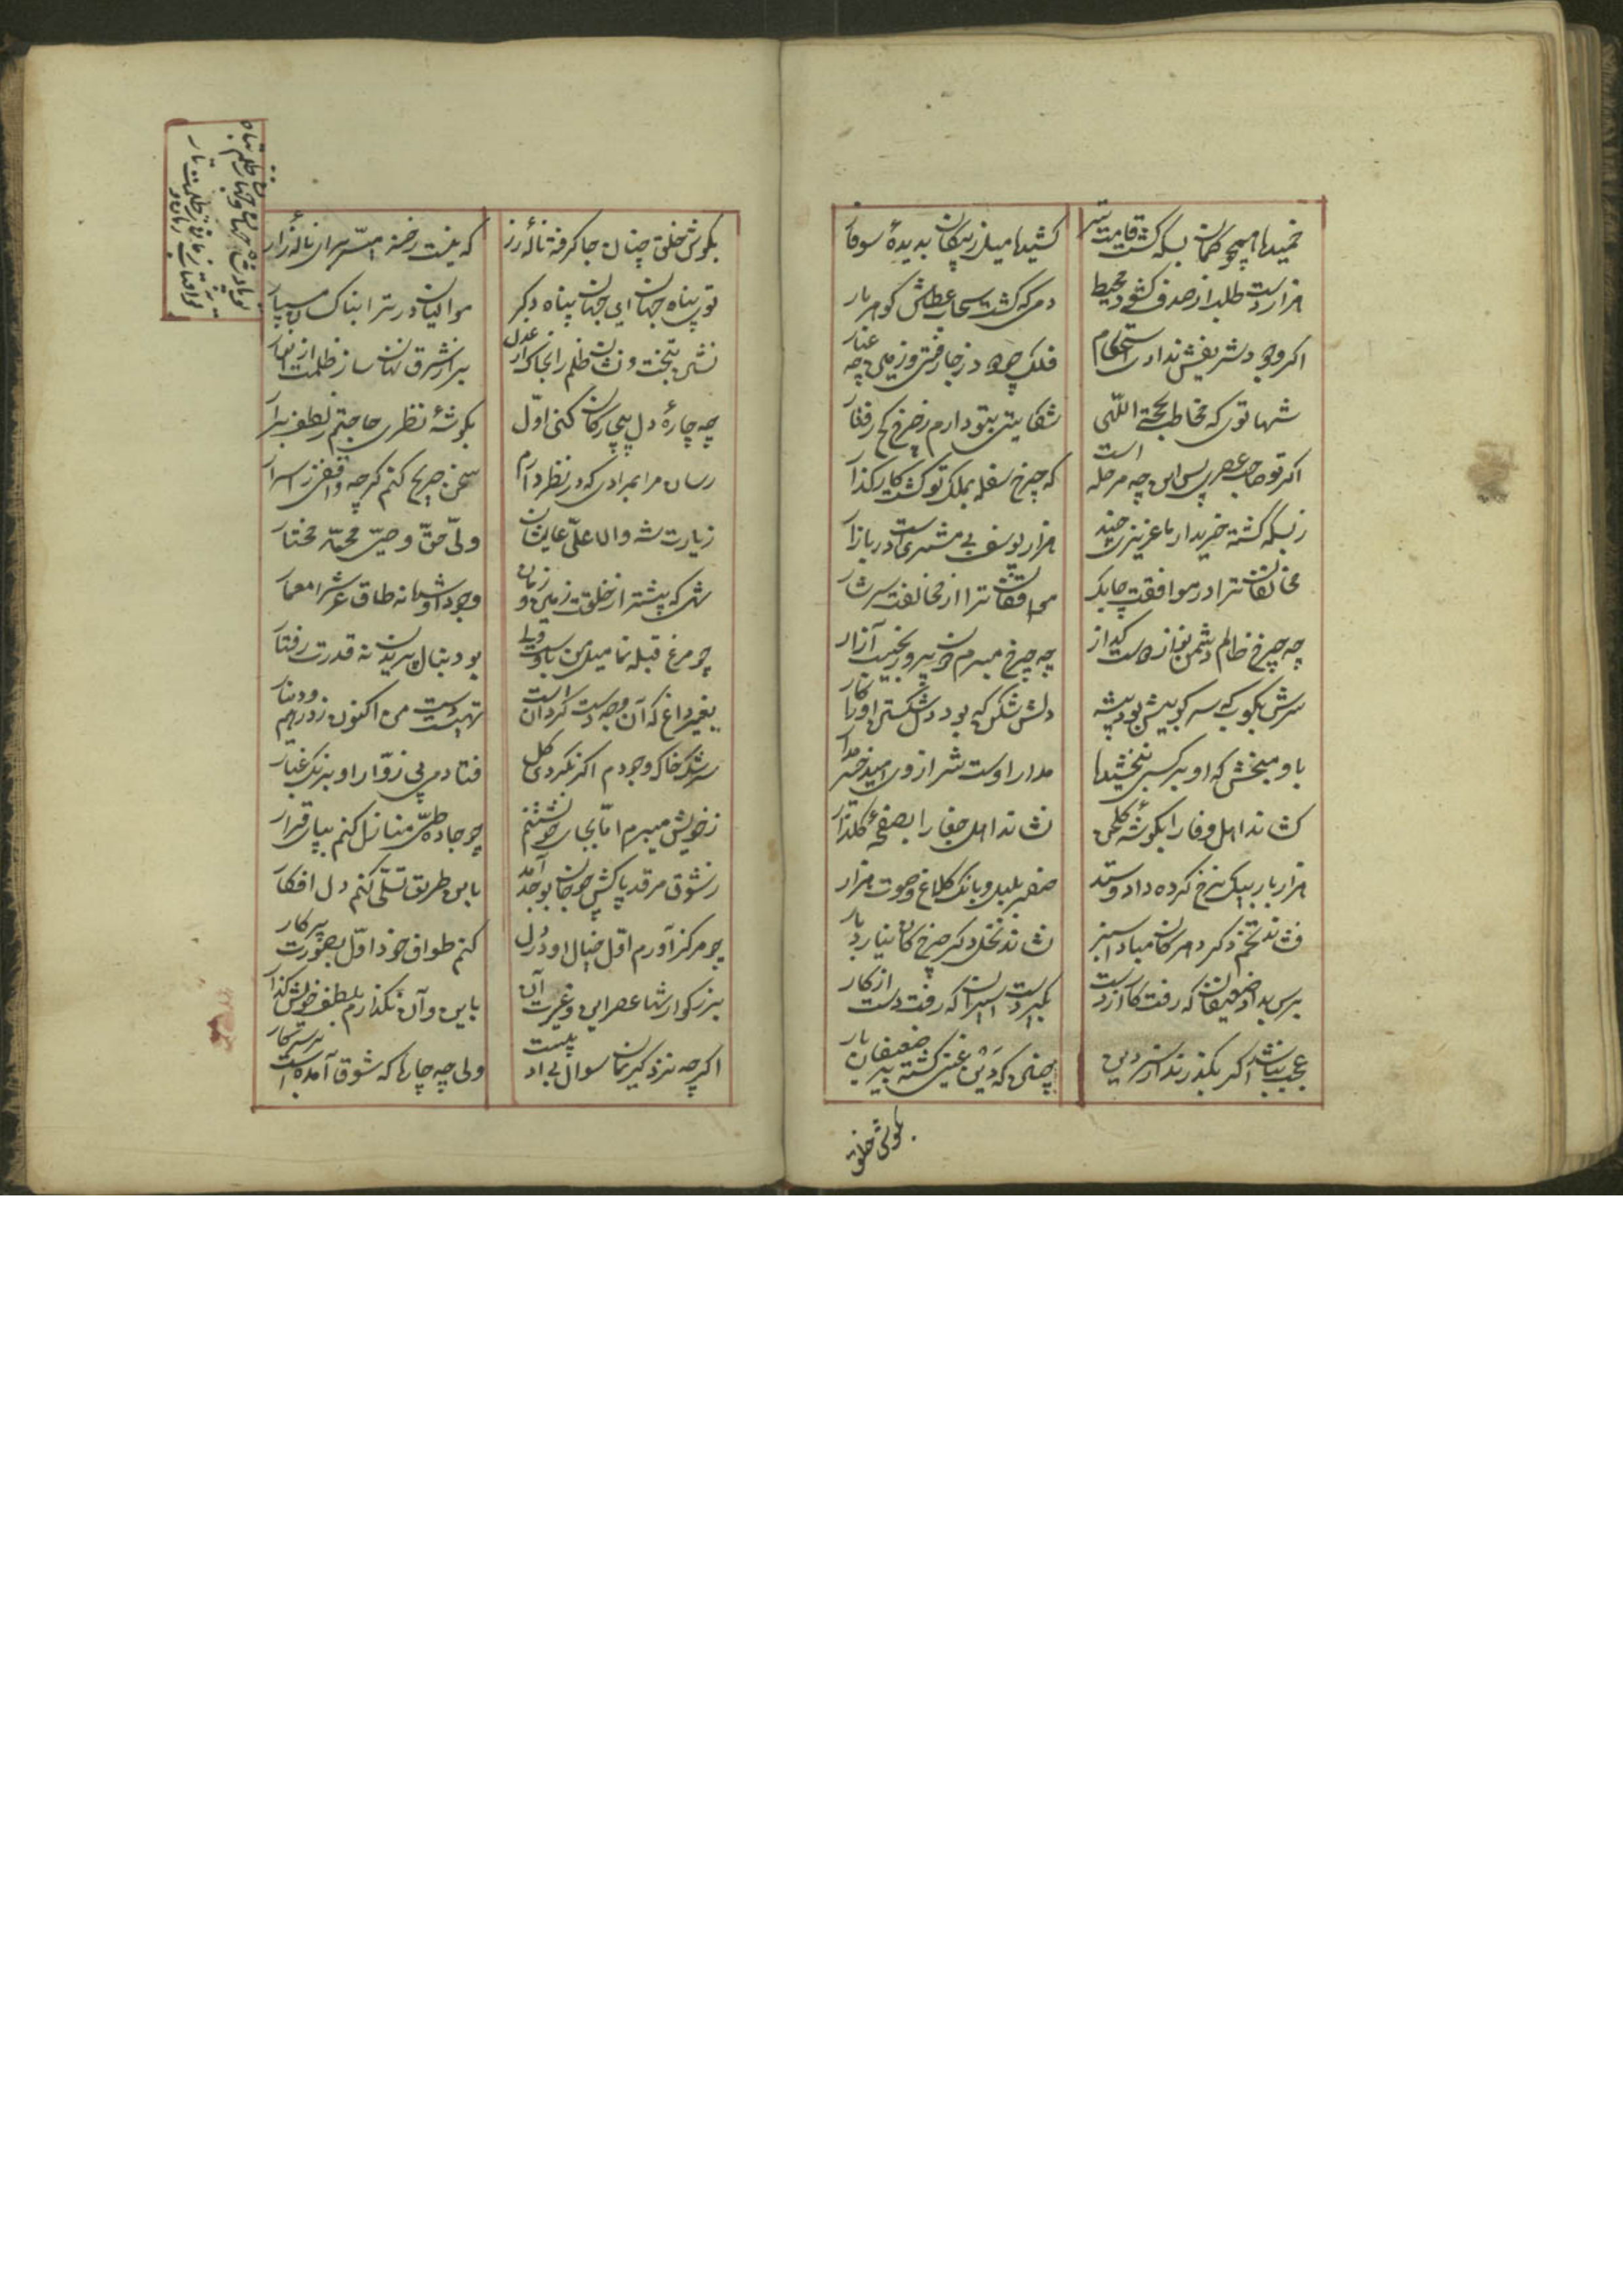 خمیده همچو کمان بسکه گشت قامت تیر
کشیده میل ز پیکان بدیدهٔ سوفار
هزار دست طلب از صدف گشود محیط
دمی که گشت سحاب عطاش گوهربار
اگر وجود شریفش ندادی استحکام
فلک چو دود ز جا رفتی و زمین چو غبار
شها توی که مخاطب بحجة اللّهی
شکایتی بتو دارم ز چرخ کج رفتار
اگر تو صاحب عصری پس این چه مرحله است
که چرخ سفله بملک تو گشت کارگذار
ز بسکه گشته خریدار ما عزیزی چند
هزار یوسف بی مشتری است در بازار
مخالفان ترا در موافقت چابک
موافقان ترا از مخالفت سرشار
چه چرخ ظالم دشمن نواز دوست گداز
چه چرخ مبرم دون پرور نجیب آزار
سرش بکوب که سرکوبیش بود پیشه
دلش شکن که بود دلشکستن او را کار
باو مبخش که او بر کسی نبخشیده
مدار اوست شر از وی امید خیر مدار
کشانده اهل وفا را بگوشهٔ گلخن
نشانده اهل جفا را بصفحهٔ گلزار
هزار بار بیک نرخ کرده داد و ستد
صفیر بلبل و بانک کلاغ و صوت هزار
فشانده تخم دگر دهر کان مباد سبز
نشانده نخل دگر چرخ کان نیارد بار
برس بداد ضعیفان که رفت کار از دست
بگیر دست اسیران که رفت دست از کار
عجب نباشد اگر بگذرند از سر دین
چنین که دین غنی گشته بر ضعیفان بار
بگوش خلق
بگوش خلق چنان جا گرفته نالهٔ زر
که نیست رخنه میسّر برای نالهٔ زار
تو پناه جهان ای جهان پناه دگر
موالیان در ترا بناکسان مسپار
نشین بتخت و نشان ظلم را بخاک از عدل
برا ز شرق نهان ساز ظلمت از انوار
چه چارهٔ دل بیچارگان کنی اوّل
بگوشهٔ نظری حاجتم ز لطف برآر
رسان مرا بمرادی که در نظر دارم
سخن صریح کنم گرچه واقفی ز اسرار
زیارت شه والا علیّ عالیشان
ولّی حقّ و وصیّ محمّد مختار
شهی که پیشتر از خلقت زمین و زمان
وجود او شده نه طاق عرش را معمار
چو مرغ قبله نما میل من باوست ولی
بود نبال پریدن نه قدرت رفتار
بغیر داغ که آن وجه دست گردان است
تهیست دست من اکنون ز درهم و دینار
سرشک خاک وجودم اگر نکردی گل
فتادمی پی زوّار او برنگ غبار
ز خویش میبرم امّا بجای خود نشینم
چو جاده طیّ منازل کنم بپای قرار
ز شوق مرقد پاکش چو جان بوجد آمد
باین طریق تسلّی کنم دل افکار
چو مرکز آورم اوّل خیال او در دل
کنم طواف خود اوّل بصورت پرکار
بزرگوار شها عصر این و غیرت آن
باین و آن نگذارم بلطف خویش گذار
اگرچه نزد کریمان سوال بی ادبیست
ولی چه چاره که شوق آمده است بر سر کار